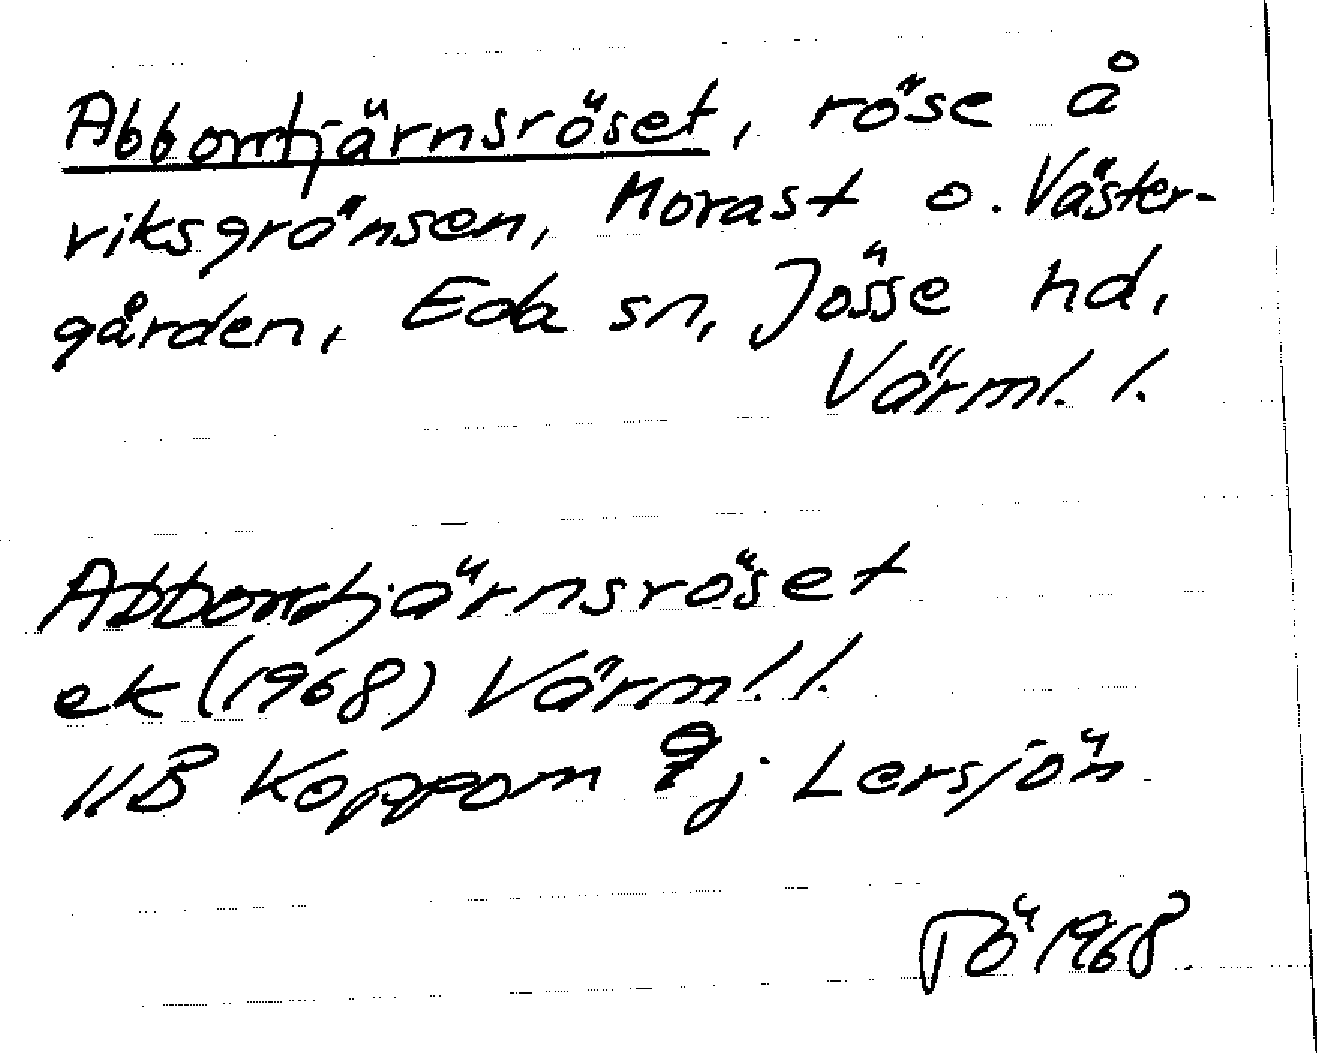 Abborrtjärnsröset, röse å
riksgränsen, Morast o. Väster-
gården, Eda sn, Jösse hd,
Värml. l.
Abborrtjärnsröset
ek (1968) Värml. l.
11B Koppom 9j Lersjön
TÖ 1968